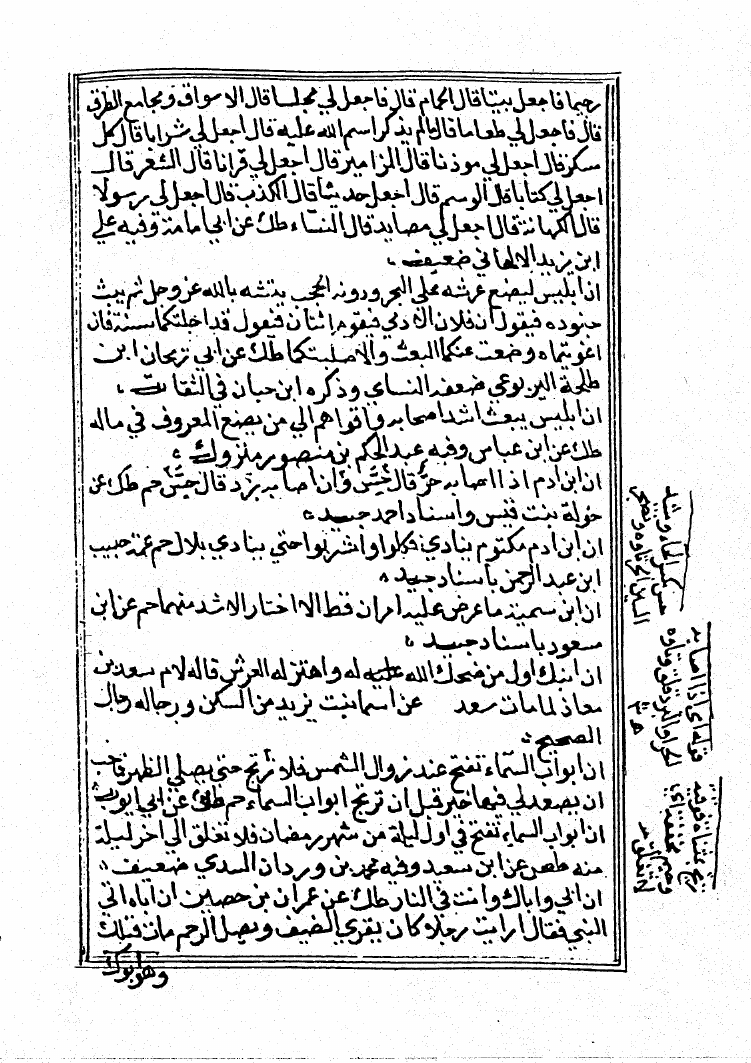 رجيما فاجعل بيتا قال الحمام قال فاجعل لي مجلسا قال الاسواق ومجامع الطرق
قال فاجعل لي طعاما قال مالم يذكر اسم الله عليه قال اجعل لي شرابا قال كل
مسكر قال اجعل لي موذنا قال المزامير قال اجعل لي قرانا قال الشعر قال
اجعل لي كتابا قال الوسم قال اجعل حديثا قال الكذب قال اجعل لي رسولا
قال الكهانة قال اجعل لي مصايد قال النساء طك عن ابي امامة وفيه علي
ابن يزيد الالهاني ضعيف
ان ابليس ليضع عرشه علي البحر ودونه الحجب يتشبه بالله عز وجل ثم يبث
جنوده فيقول من لفلان الادمي فيقوم اثنان فيقول قد اجلتكما سنة فان
اغويتماه وضعت عنكما البعث والا صلبتكما طك عن ابي ريحان ابن
طلحة اليربوعي ضعفه النساي وذكره ابن حبان في الثقات
ان ابليس يبعث اشد اصحابه واقواهم الي من يصنع المعروف في ماله
طك عن ابن عباس وفيه عبد الحكم بن منصور متروك
ان ابن ادم اذا اصابه حر قال حس وان اصابه برد قال حس حم طك عن
خولة بنت قيس واسناد احمد جيد
ان ابن ام مكتوم ينادي فكلوا واشربوا حتي ينادي بلال حم عن عمة حبيب
ابن عبد الرحمن باسناد جيد
ان ابن سمية ما عرض عليه امران قط الا اختار الارشد منهما حم عن ابن
مسعود باسناد جيد
ان ابنك اول من ضحك الله عليه له واهتز له العرش قاله لام سعد بن
معاذ لما مات سعد عن اسما بنت يزيد من السكن ورجاله رجال
الصحيح
ان ابواب السماء تفتح عند زوال الشمس فلا ترتج حتي يصلي الظهر فاحب
ان يصعد لي فيها خير قبل ان ترتج ابواب السماء حم طك عن ابي ايوب
ان ابواب السماء تفتح في اول ليلة من شهر رمضان فلا تغلق الي اخر ليلة
منه طص عن ابن سعيد وفيه محمد بن وردان السدي ضعيف
ان ابي واباك وانت في النار طك عن عمران بن حصين ان اباه اتي
النبي فقال ارايت رجلا كان يقري الضيف ويصل الرحم مات قبلك
وهو ابوك
قوله اي اذا اصابه
الحر او البرد قلق وتاوه
حس بكسر الحاء وتشديد
السين